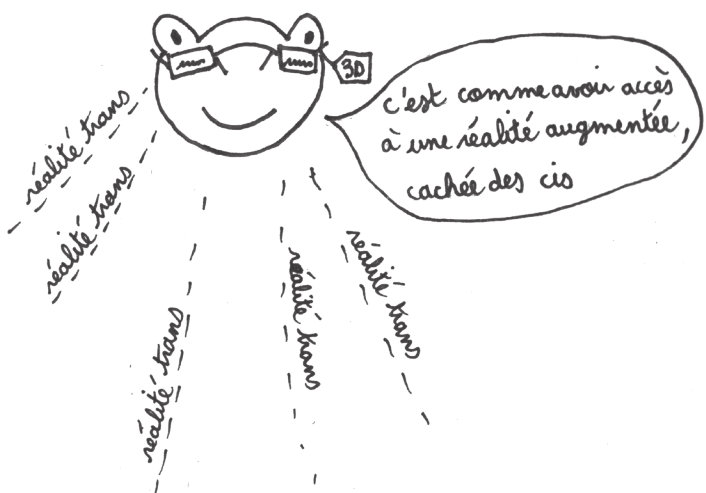 3D
c'est comme avoir accès
à une réalité augmentée,
cachée des cis
réalité trans
réalité trans
réalité trans
réalité trans
réalité trans